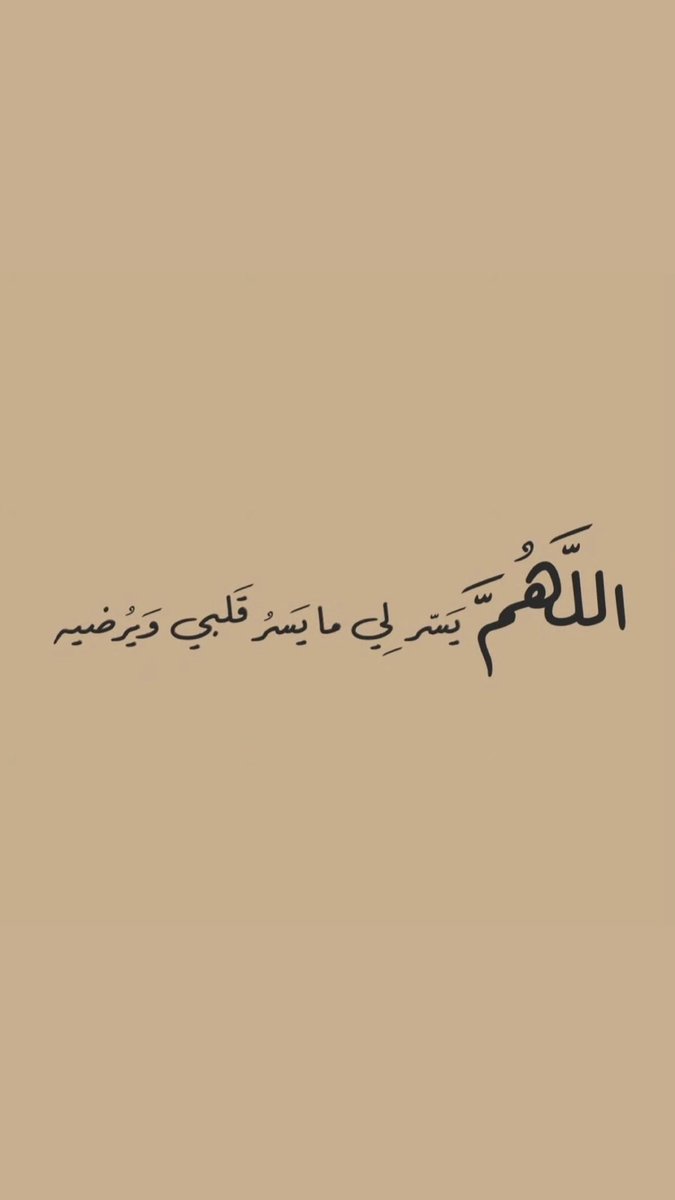 اللَّهُمَّ يَسّر لِي ما يَسَرُ قَلبي وَيُرضيه